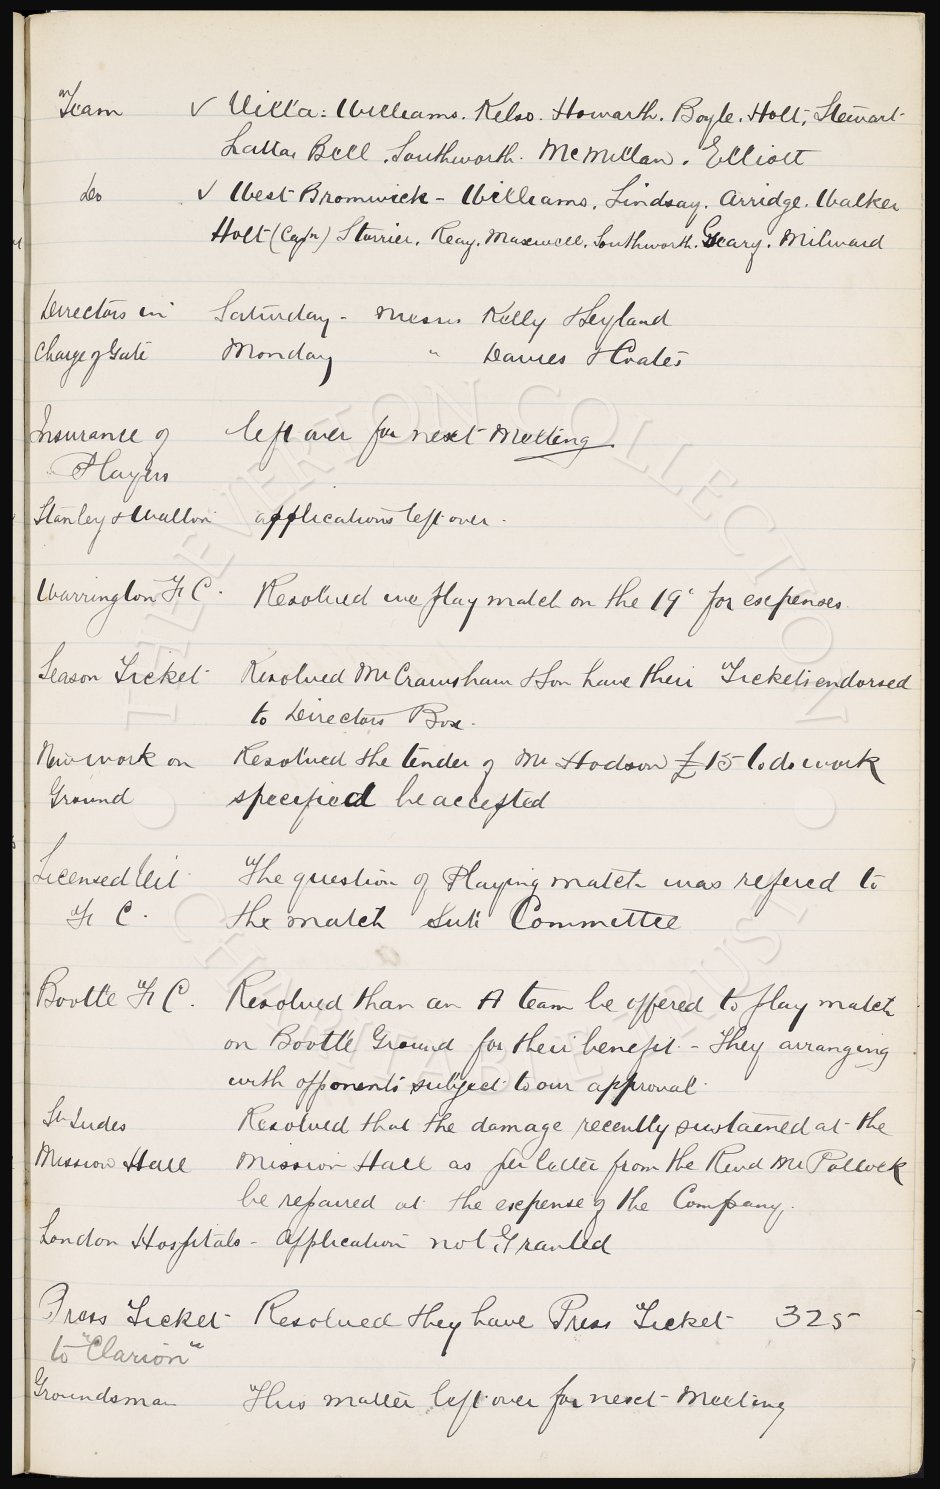 Team v Villa: Williams. Kelso. Howarth. Boyle. Holt, Stewart
Latta Bell. Southworth. McMillan. Elliott
Do v West Bromwich - Williams, Lindsay. Arridge. Walker
Holt (Capn) Storrier. Reay. Maxwell. Southworth. Geary. Milward
Directors in Saturday - Messrs Kelly & Leyland
Charge of Gate Monday " Davies & Coates
Insurance of left over for next Meeting
Players
Stanley & Walton applications left over.
Warrington F C. Resolved we play match on the 19th for expenses.
Season Ticket Resolved Mr Cramsham & Son have their Tickets endorsed
to Directors Box.
New work on Resolved the tender of Mr Hodson £15 to do work
Ground specified be accepted
Licensed Vit The question of Playing match was refered to
F C. the match Sub Committee
Bootle F C. Resolved than an A team be offered to play match
on Bootle Ground for their benefit - they arranging
with opponents subject to our approval.
St Judes Resolved that the damage recently sustained at the
Mission Hall Mission Hall as per letter from the Revd Mr Pollock
be repaired at the expense of the Company.
London Hospitals - Application not Granted
Press Ticket Resolved they have Press Ticket 325
to "Clarion"
Groundsman This matter left over for next Meeting
THE EVERTON COLLECTION
CHARITABLE TRUST